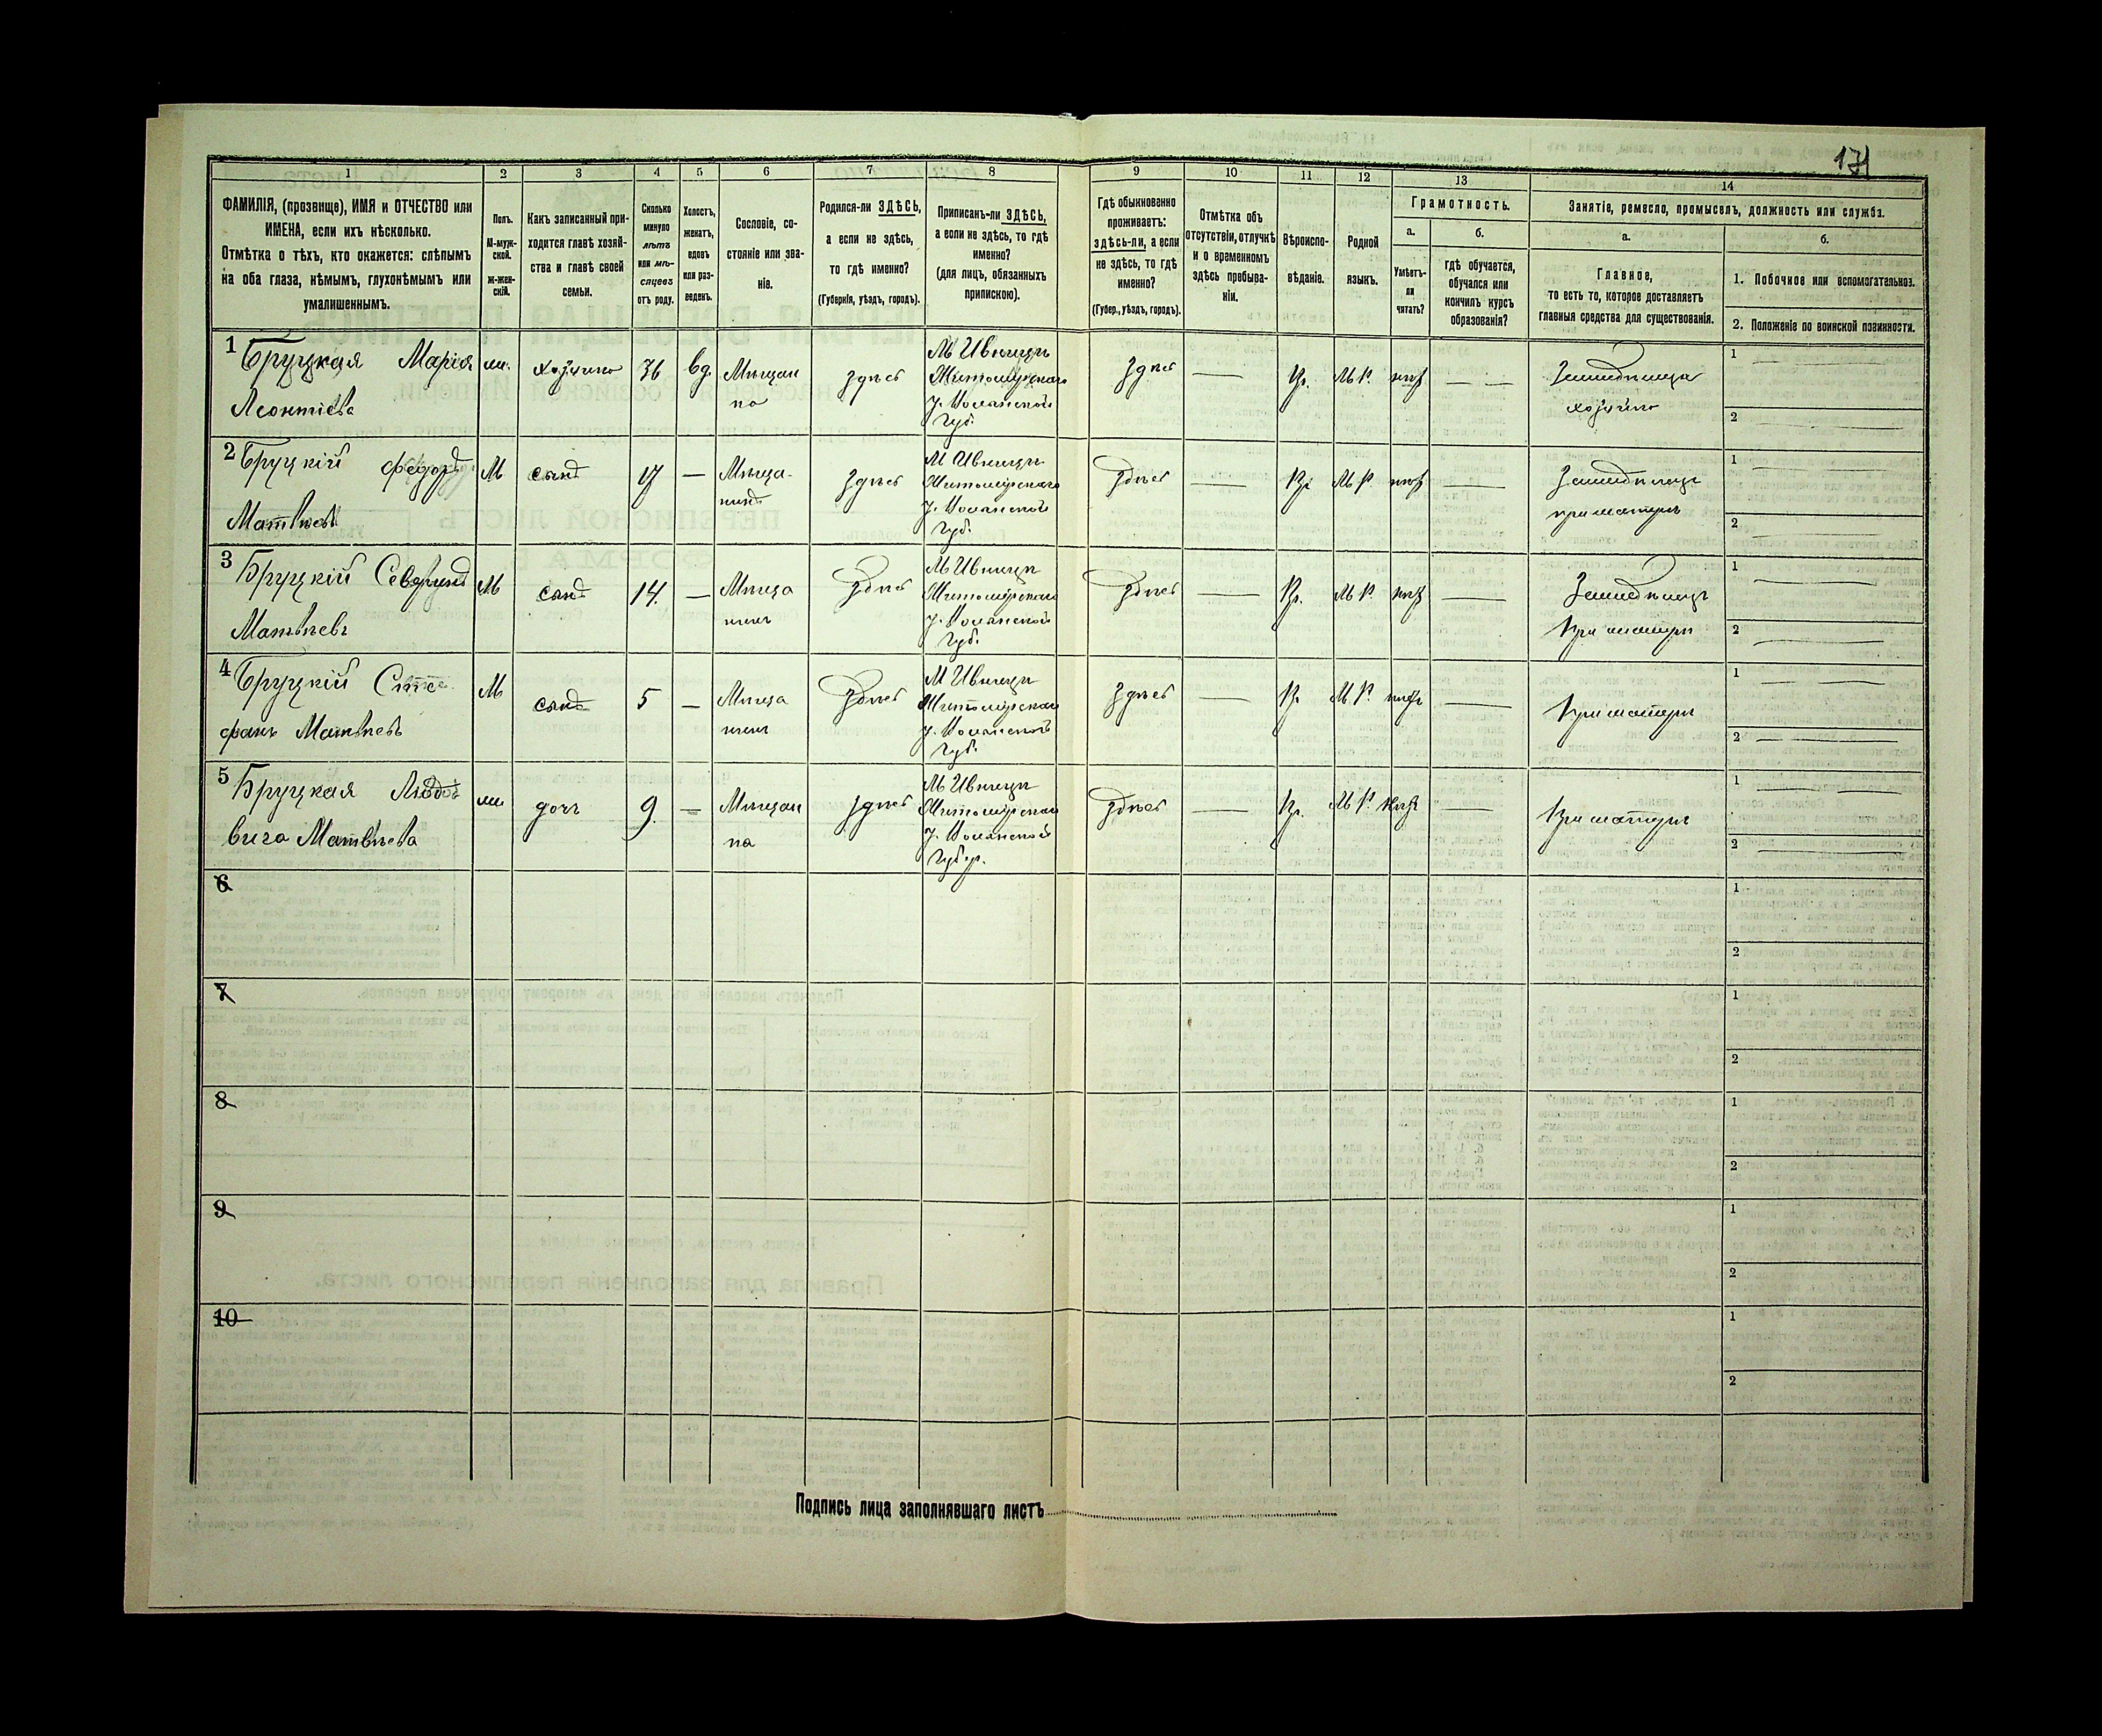 171
1 2 3 4 5 6 7 8 9 10 11 12 13 14
ФАМИЛІЯ, (прозвище), ИМЯ и ОТЧЕСТВО или
ИМЕНА, если ихъ нѣсколько.
Отмѣтка о тѣхъ, кто окажется: слѣпымъ
на оба глаза, нѣмымъ, глухонѣмымъ или
умалишеннымъ.
Полъ.
М-муж-
ской.
ж-жен-
скій.
Какъ записанный при-
ходится главѣ хозяй-
ства и главѣ своей
семьи.
Сколько
минуло
лѣтъ
или мѣ-
сяцевъ
отъ роду.
Холостъ,
женатъ,
вдовъ
или раз-
веденъ.
Сословіе, со-
стояніе или зва-
ніе.
Родился-ли ЗДѢСЬ,
а если не здѣсь,
то гдѣ именно?
(Губернія, уѣздъ, городъ).
Приписанъ-ли ЗДѢСЬ,
а если не здѣсь, то гдѣ
именно?
(для лицъ, обязанныхъ
припискою).
Гдѣ обыкновенно
проживаетъ:
здѣсь-ли, а если
не здѣсь, то гдѣ
именно?
(Губер., уѣздъ, городъ).
Отмѣтка объ
отсутствіи, отлучкѣ
и о временномъ
здѣсь пребыва-
ніи.
Вѣроиспо-
вѣданіе.
Родной
языкъ.
Грамотность.
а.
Умѣетъ-
ли
читать?
б.
гдѣ обучается,
обучался или
кончилъ курсъ
образованія?
Занятіе, ремесло, промыселъ, должность или служба.
а.
Главное,
то есть то, которое доставляетъ
главныя средства для существованія.
б.
1. Побочное или вспомогательное.
2. Положеніе по воинской повинности.
1 Бруцкая Марія
Леонтіева
ж. хозяйка 36 вд.
Мѣщан
ка
здѣсь
М Ивницы
Житомірскаго
у. Волынской
Губ.
здѣсь — нѣтъ —
хозяйка
1
2
2 Бруцкій Федоръ
Матвѣевъ
М сынъ 17 —
Мѣща-
нинъ
здѣсь
М Ивницы
Житомірскаго
у. Волынской
Губ.
здѣсь — нѣтъ —
при матери
1
2
3 Бруцкій
Матвѣевъ
М сынъ 14. —
Мѣща
нинъ
здѣсь
М Ивницы
Житомірскаго
у. Волынской
Губ.
здѣсь — нѣтъ —
При матери
1
2
4 Бруцкій Сте
фанъ Матвѣевъ
М сынъ 5 —
Мѣща
нинъ
здѣсь
М Ивницы
Житомірскаго
у. Волынской
Губ.
здѣсь — нѣтъ —
При матери
1
2
5 Бруцкая Людо
вига Матвѣева
ж дочь 9. —
Мѣщан
ка
здѣсь
М Ивницы
Житомірскаго
у. Волынской
Губер.
здѣсь — нѣтъ —
При матери
1
2
6
1
2
7
1
2
8
1
2
9
1
2
10
1
2
Подпись лица заполнявшаго листъ